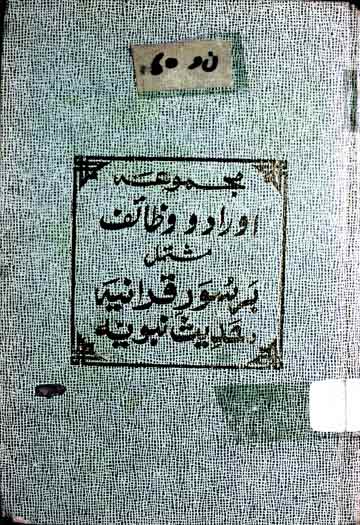 مجموعه
اوراد و وظائف
مشتمل
بر سُوَر قرانیه
حدیث نبویه